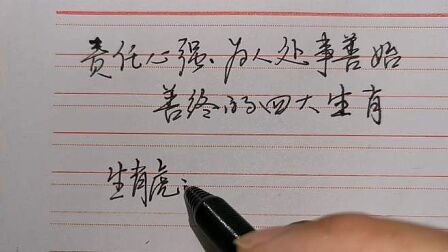 责任心强、为人处事善始
善终的四大生肖
生肖虎: